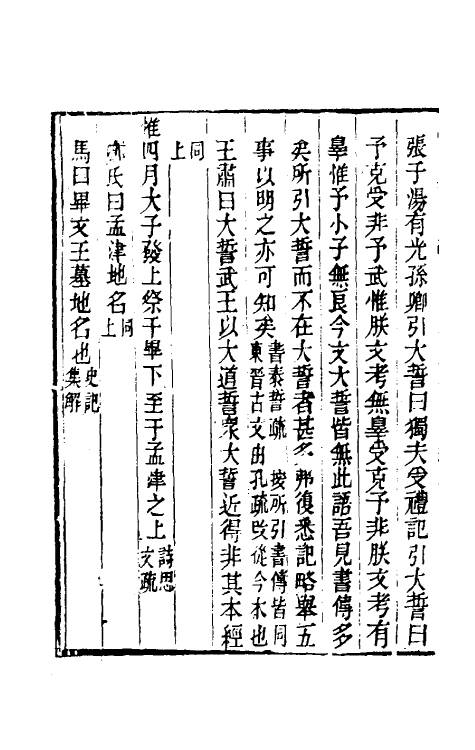 張于湯有光孫卿引大誓曰獨夫受禮記引大誓曰
予克受非予武惟朕文考無辠受克予非朕文考有
辠惟予小子無良今文大誓皆無此語吾見書傳多
矣所引大誓而不在大誓者甚多弗復悉記略舉五
事以明之亦可知矣書泰誓疏 按所引書傳皆同東晉古文由孔疏改從今本也
王肅曰大誓武王以大道誓衆大誓近得非其本經
同上
惟四月大子發上祭于畢下至于孟津之上詩思文疏
氏曰孟津地名同上
馬曰畢文王墓地名也史記集解